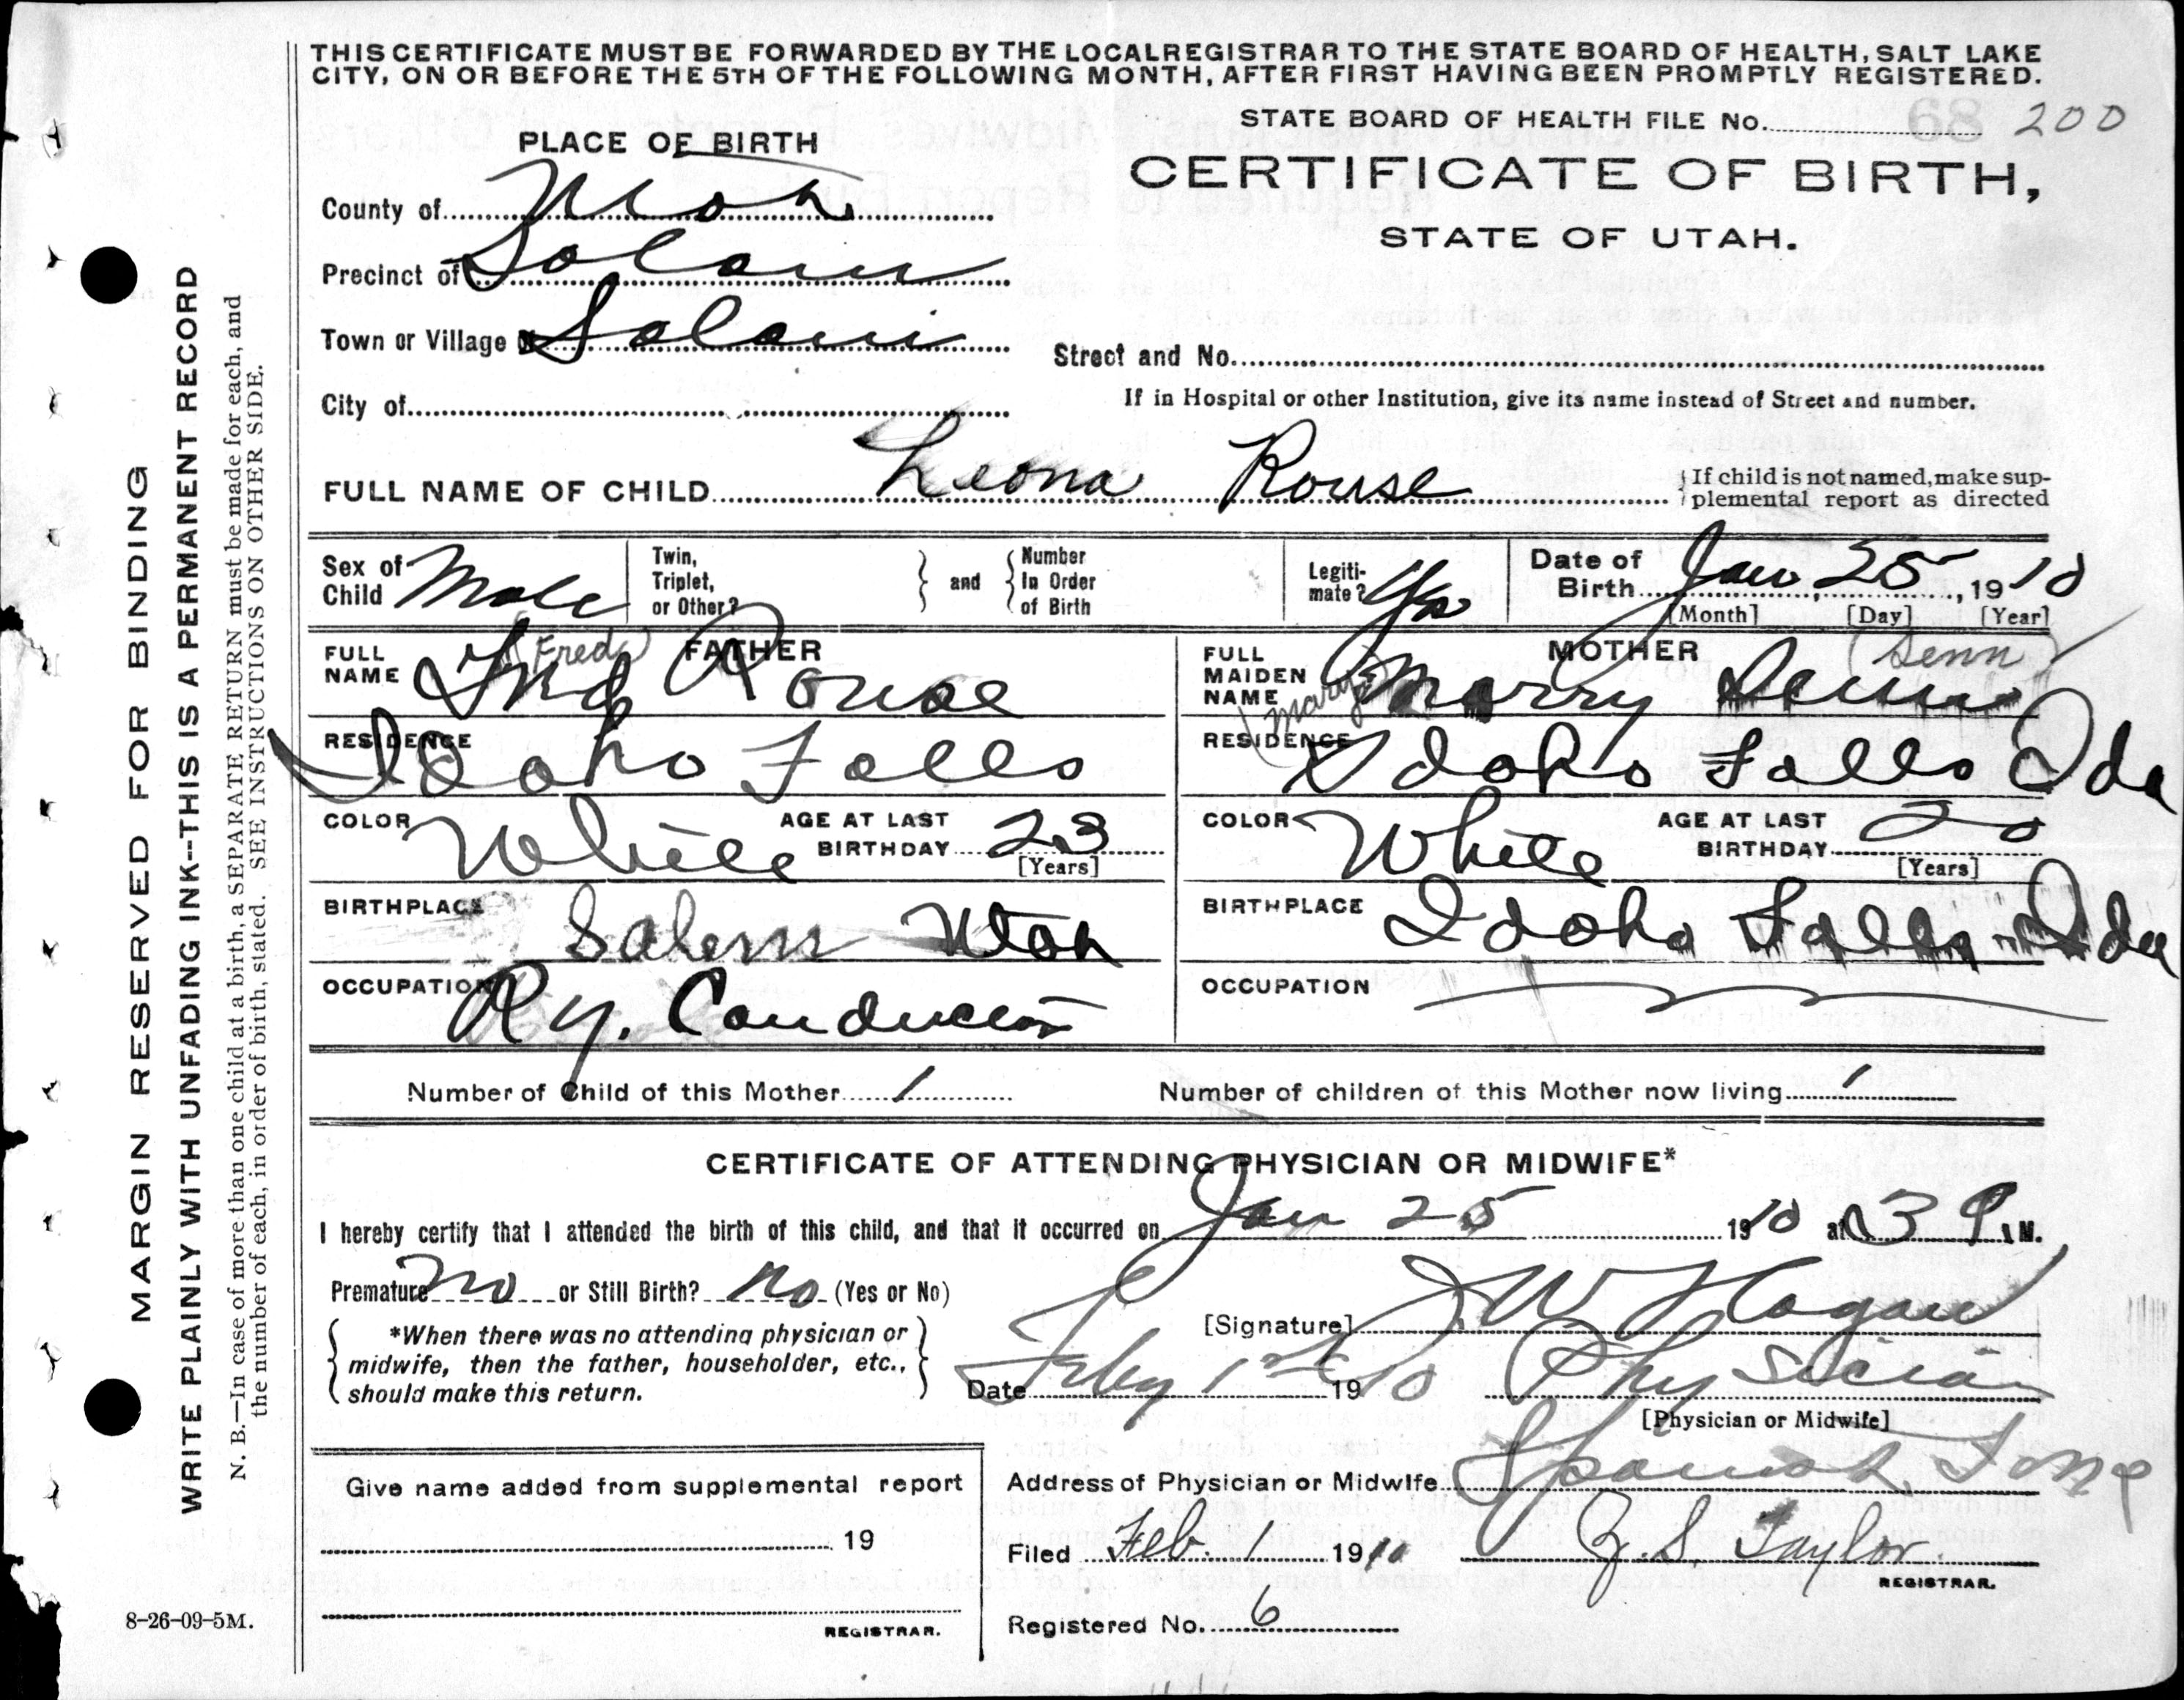 THIS CERTIFICATE MUST BE FORWARDED BY THE LOCAL REGISTRAR TO THE STATE BOARD OF HEALTH, SALT LAKE
CITY, ON OR BEFORE THE 5TH OF THE FOLLOWING MONTH, AFTER FIRST HAVING BEEN PROMPTLY REGISTERED.
STATE BOARD OF HEALTH FILE No. 200
PLACE OF BIRTH
CERTIFICATE OF BIRTH,
STATE OF UTAH.
County of Utah
Precinct of Salem
Town or Village of Salem
Street and No.
City of
If in Hospital or other Institution, give its name instead of Street and number.
FULL NAME OF CHILD Leona Rouse
{If child is not named, make sup-
plemental report as directed
Sex of Child Male
Twin, Triplet, or Other? } and { Number In Order of Birth
Legiti-mate? Yes
Date of Birth Jan 25, 1910
[Month] [Day] [Year]
FATHER
FULL NAME Fred Rouse (Fred)
RESIDENCE Idaho Falls
COLOR White
AGE AT LAST BIRTHDAY 23
[Years]
BIRTHPLACE Salem Utah
OCCUPATION Ry. Conductor
MOTHER
FULL MAIDEN NAME Marry Senn (Mary) (Senn)
RESIDENCE Idaho Falls Ida
COLOR White
AGE AT LAST BIRTHDAY 20
[Years]
BIRTHPLACE Idaho Falls Ida
OCCUPATION
Number of Child of this Mother 1
Number of children of this Mother now living 1
CERTIFICATE OF ATTENDING PHYSICIAN OR MIDWIFE*
I hereby certify that I attended the birth of this child, and that it occurred on Jan 25 1910 at 3 P. M.
Premature No or Still Birth? No (Yes or No)
*When there was no attending physician or
midwife, then the father, householder, etc.,
should make this return.
[Signature] J W Hagan
Date Feby 1st 1910 Physician
[Physician or Midwife]
Address of Physician or Midwife Spanish Fork
Give name added from supplemental report
19
REGISTRAR.
Filed Feb. 1 1910 Z. S. Taylor
REGISTRAR.
Registered No. 6
8-26-09-5M.
MARGIN RESERVED FOR BINDING
WRITE PLAINLY WITH UNFADING INK--THIS IS A PERMANENT RECORD
N. B.—In case of more than one child at a birth, a SEPARATE RETURN must be made for each, and
the number of each, in order of birth, stated. SEE INSTRUCTIONS ON OTHER SIDE.